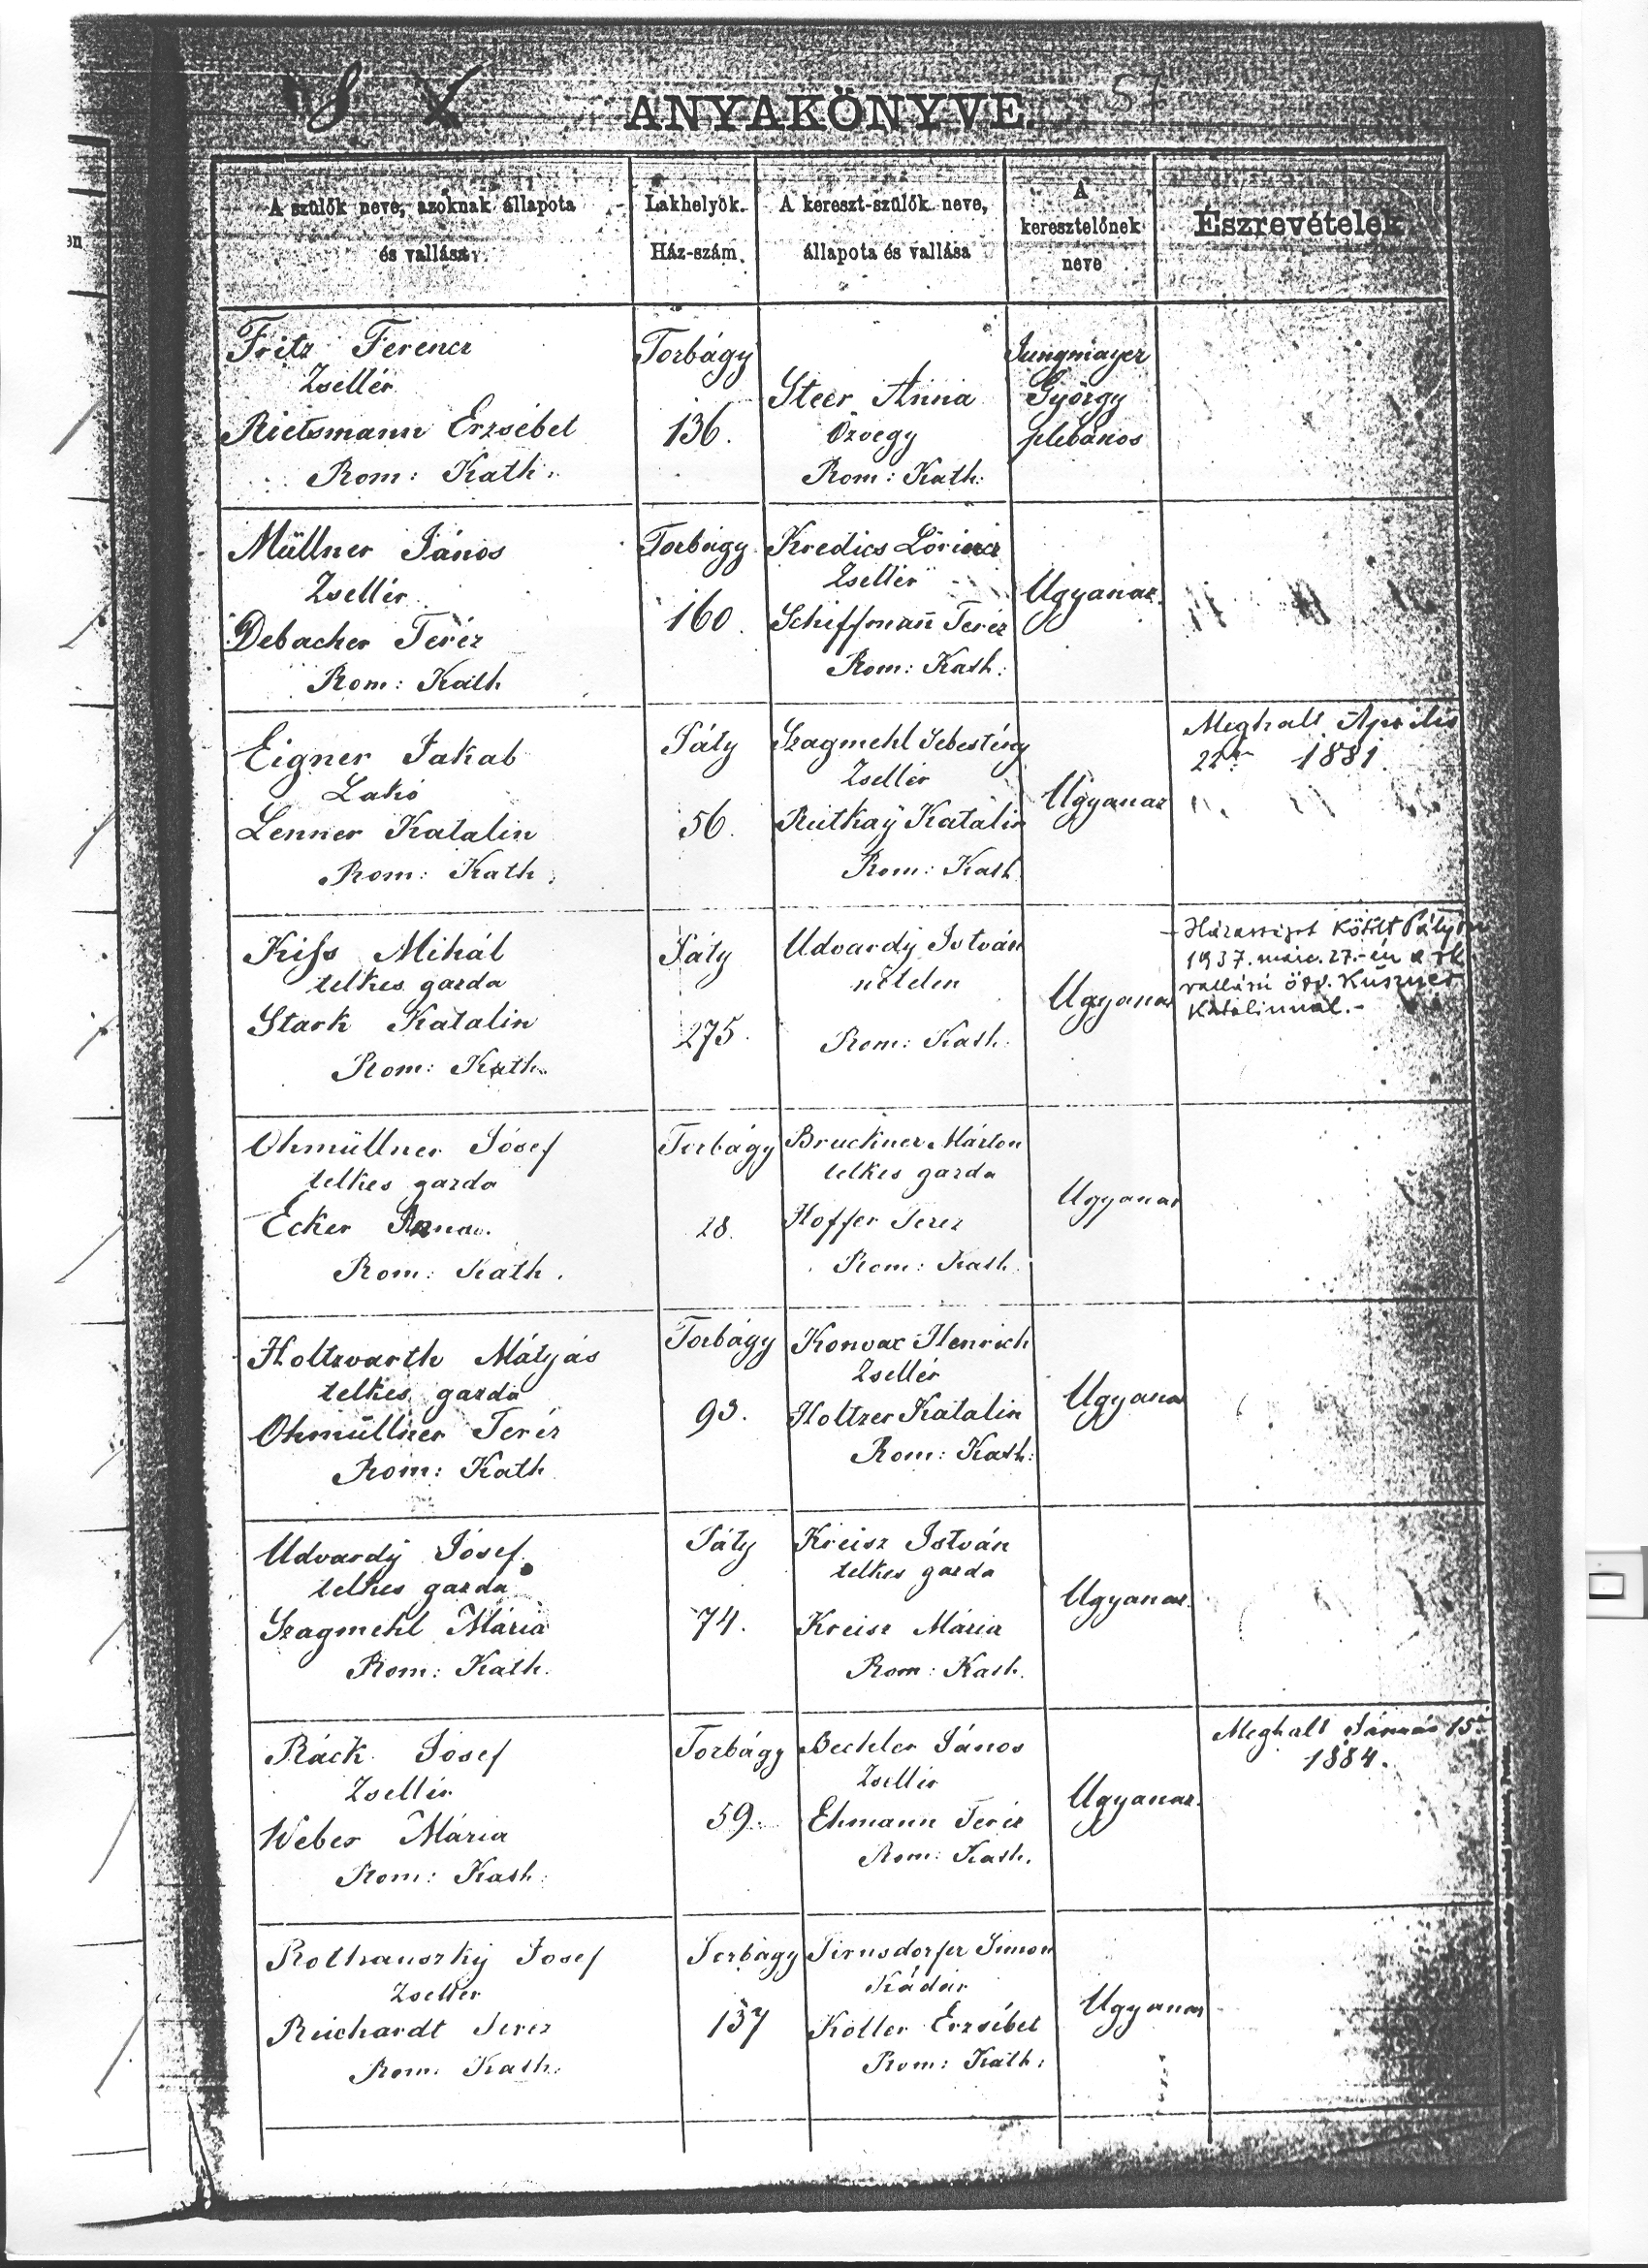 ANYAKÖNYVE. 57
A szülők neve, azoknak állapota
és vallása
Lakhelyök.
Ház-szám.
A kereszt-szülők neve,
állapota és vallása
A
keresztelőnek
neve
Észrevételek
Fritz Ferencz
Zsellér
Rietsmann Erzsébet
Rom: Kath:
Torbágy
136.
Steer Anna
Özvegy
Rom: Kath:
Jungmayer
György
plébános
Müllner János
Zsellér
Debacher Teréz
Rom: Kath
Torbágy
160.
Kredics Lőrincz
Zsellér
Schiffmañ Teréz
Rom: Kath:
Ugyanaz.
Eigner Jakab
Lakó
Lenner Katalin
Rom: Kath:
Páty
56.
Szagmehl Sebestény
Zsellér
Rutkaÿ Katalin
Rom: Kath
Ugyanaz
Meghalt Április
22én 1881.
Kiss Mihál
telkes gazda
Stark Katalin
Rom: Kath.
Páty
275.
Udvardÿ István
nőtelen
Rom: Kath:
Ugyanaz
Házasságot kötött Pátyon
1937. márc. 27.-én a rk.
vallású özv. 
Katalinnal.-
Ohmüllner Jósef
telkes gazda
Ecker Anna.
Rom: Kath.
Torbágy
28.
Bruckner Márton
telkes gazda
Hoffer Terez
Rom: Kath:
Ugyanaz
Holtzvarth Mátyás
telkes gazda
Ohmüllner Teréz
Rom: Kath
Torbágy
93.
Konvax Henrich
Zsellér
Holtzer Katalin
Rom: Kath:
Ugyanaz
Udvardÿ Jósef
telkes gazda
Szagmehl Mária
Rom: Kath.
Páty
74.
Kreisz István
telkes gazda
Kreisz Mária
Rom: Kath.
Ugyanaz.
Ráck Josef
Zsellér
Weber Mária
Rom: Kath:
Torbágy
59.
Bechler János
Zsellér
Ehmann Teréz
Rom: Kath.
Ugyanaz.
Meghalt Január 15én
1884.
Rothauszkÿ Josef
Zsellér
Reichardt Terez
Rom: Kath:
Torbágy
137
Pirnsdorfer Simon
Kádár
Koller Erzsébet
Rom: Kath:
Ugyanaz